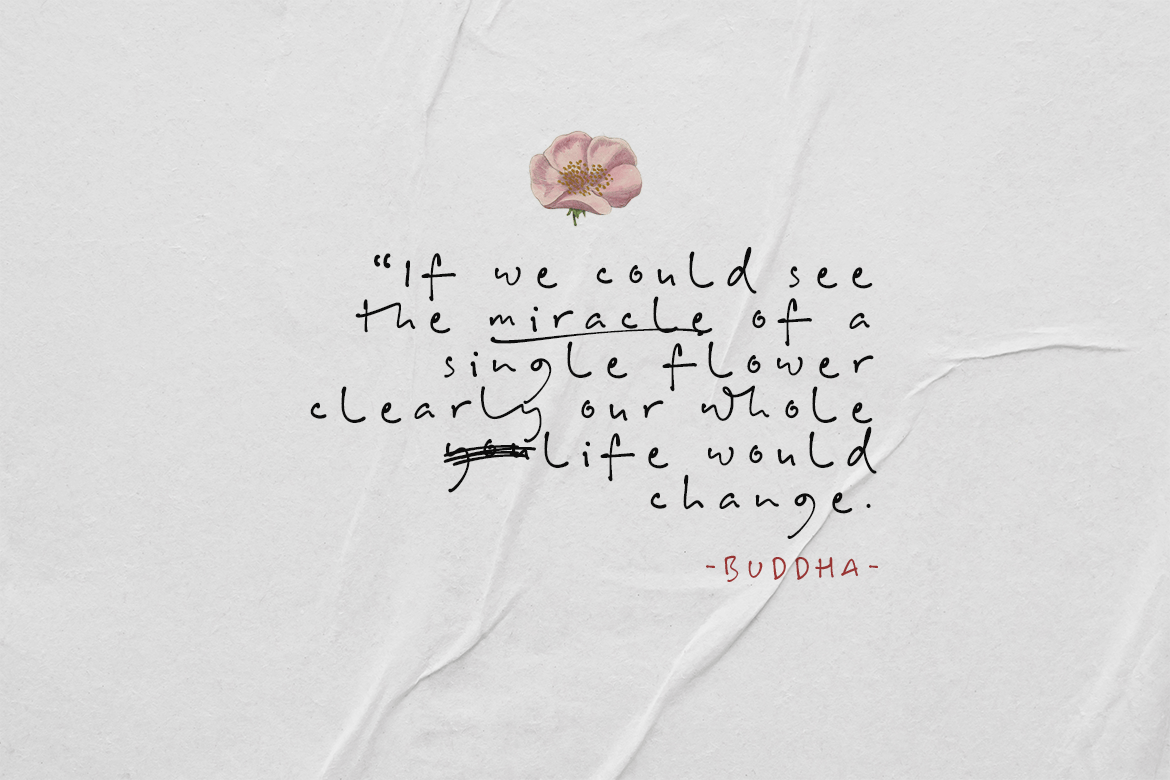 “If we could see
the miracle of a
single flower
clearly our whole
life would
change.
-BUDDHA-